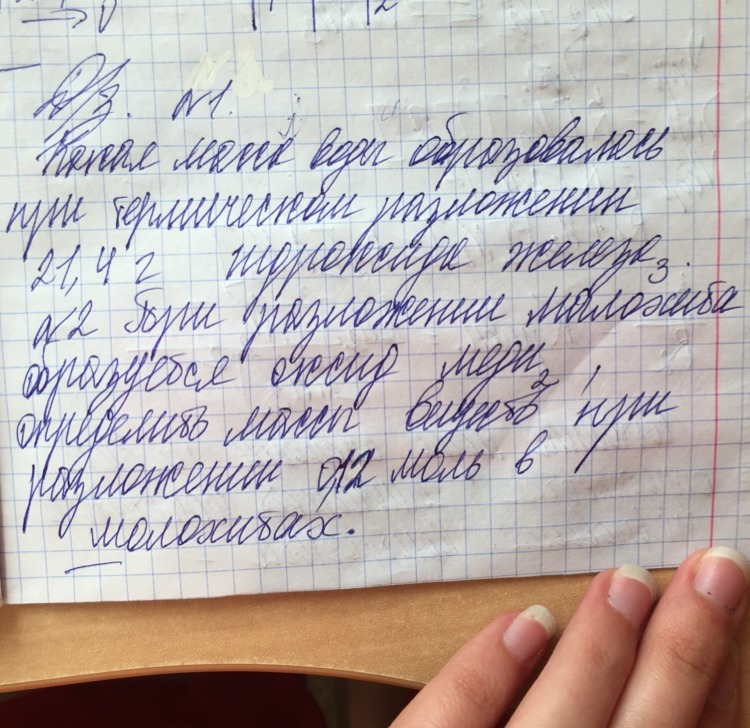 Д/з. №1.
Какая масса воды образовалась
при термическом разложении
21,4 г гидроксида железа 3.
№2 При разложении малохита
образуется оксид меди 2,
определить массы веществ при
разложении 0,2 моль в
молохитах.